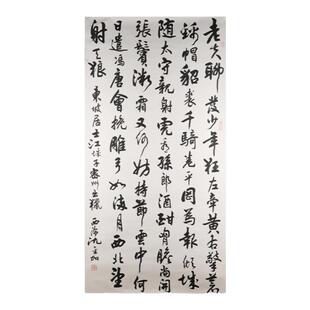 老夫聊發少年狂左牽黃右擎蒼
錦帽貂裘千騎卷平岡為報傾城
随太守親射虎看孫郎酒酣胸膽尚開
張鬢微霜又何妨持節雲中何
日遣馮唐會挽雕弓如滿月西北望
射天狼 東坡居士江城子密州出獵